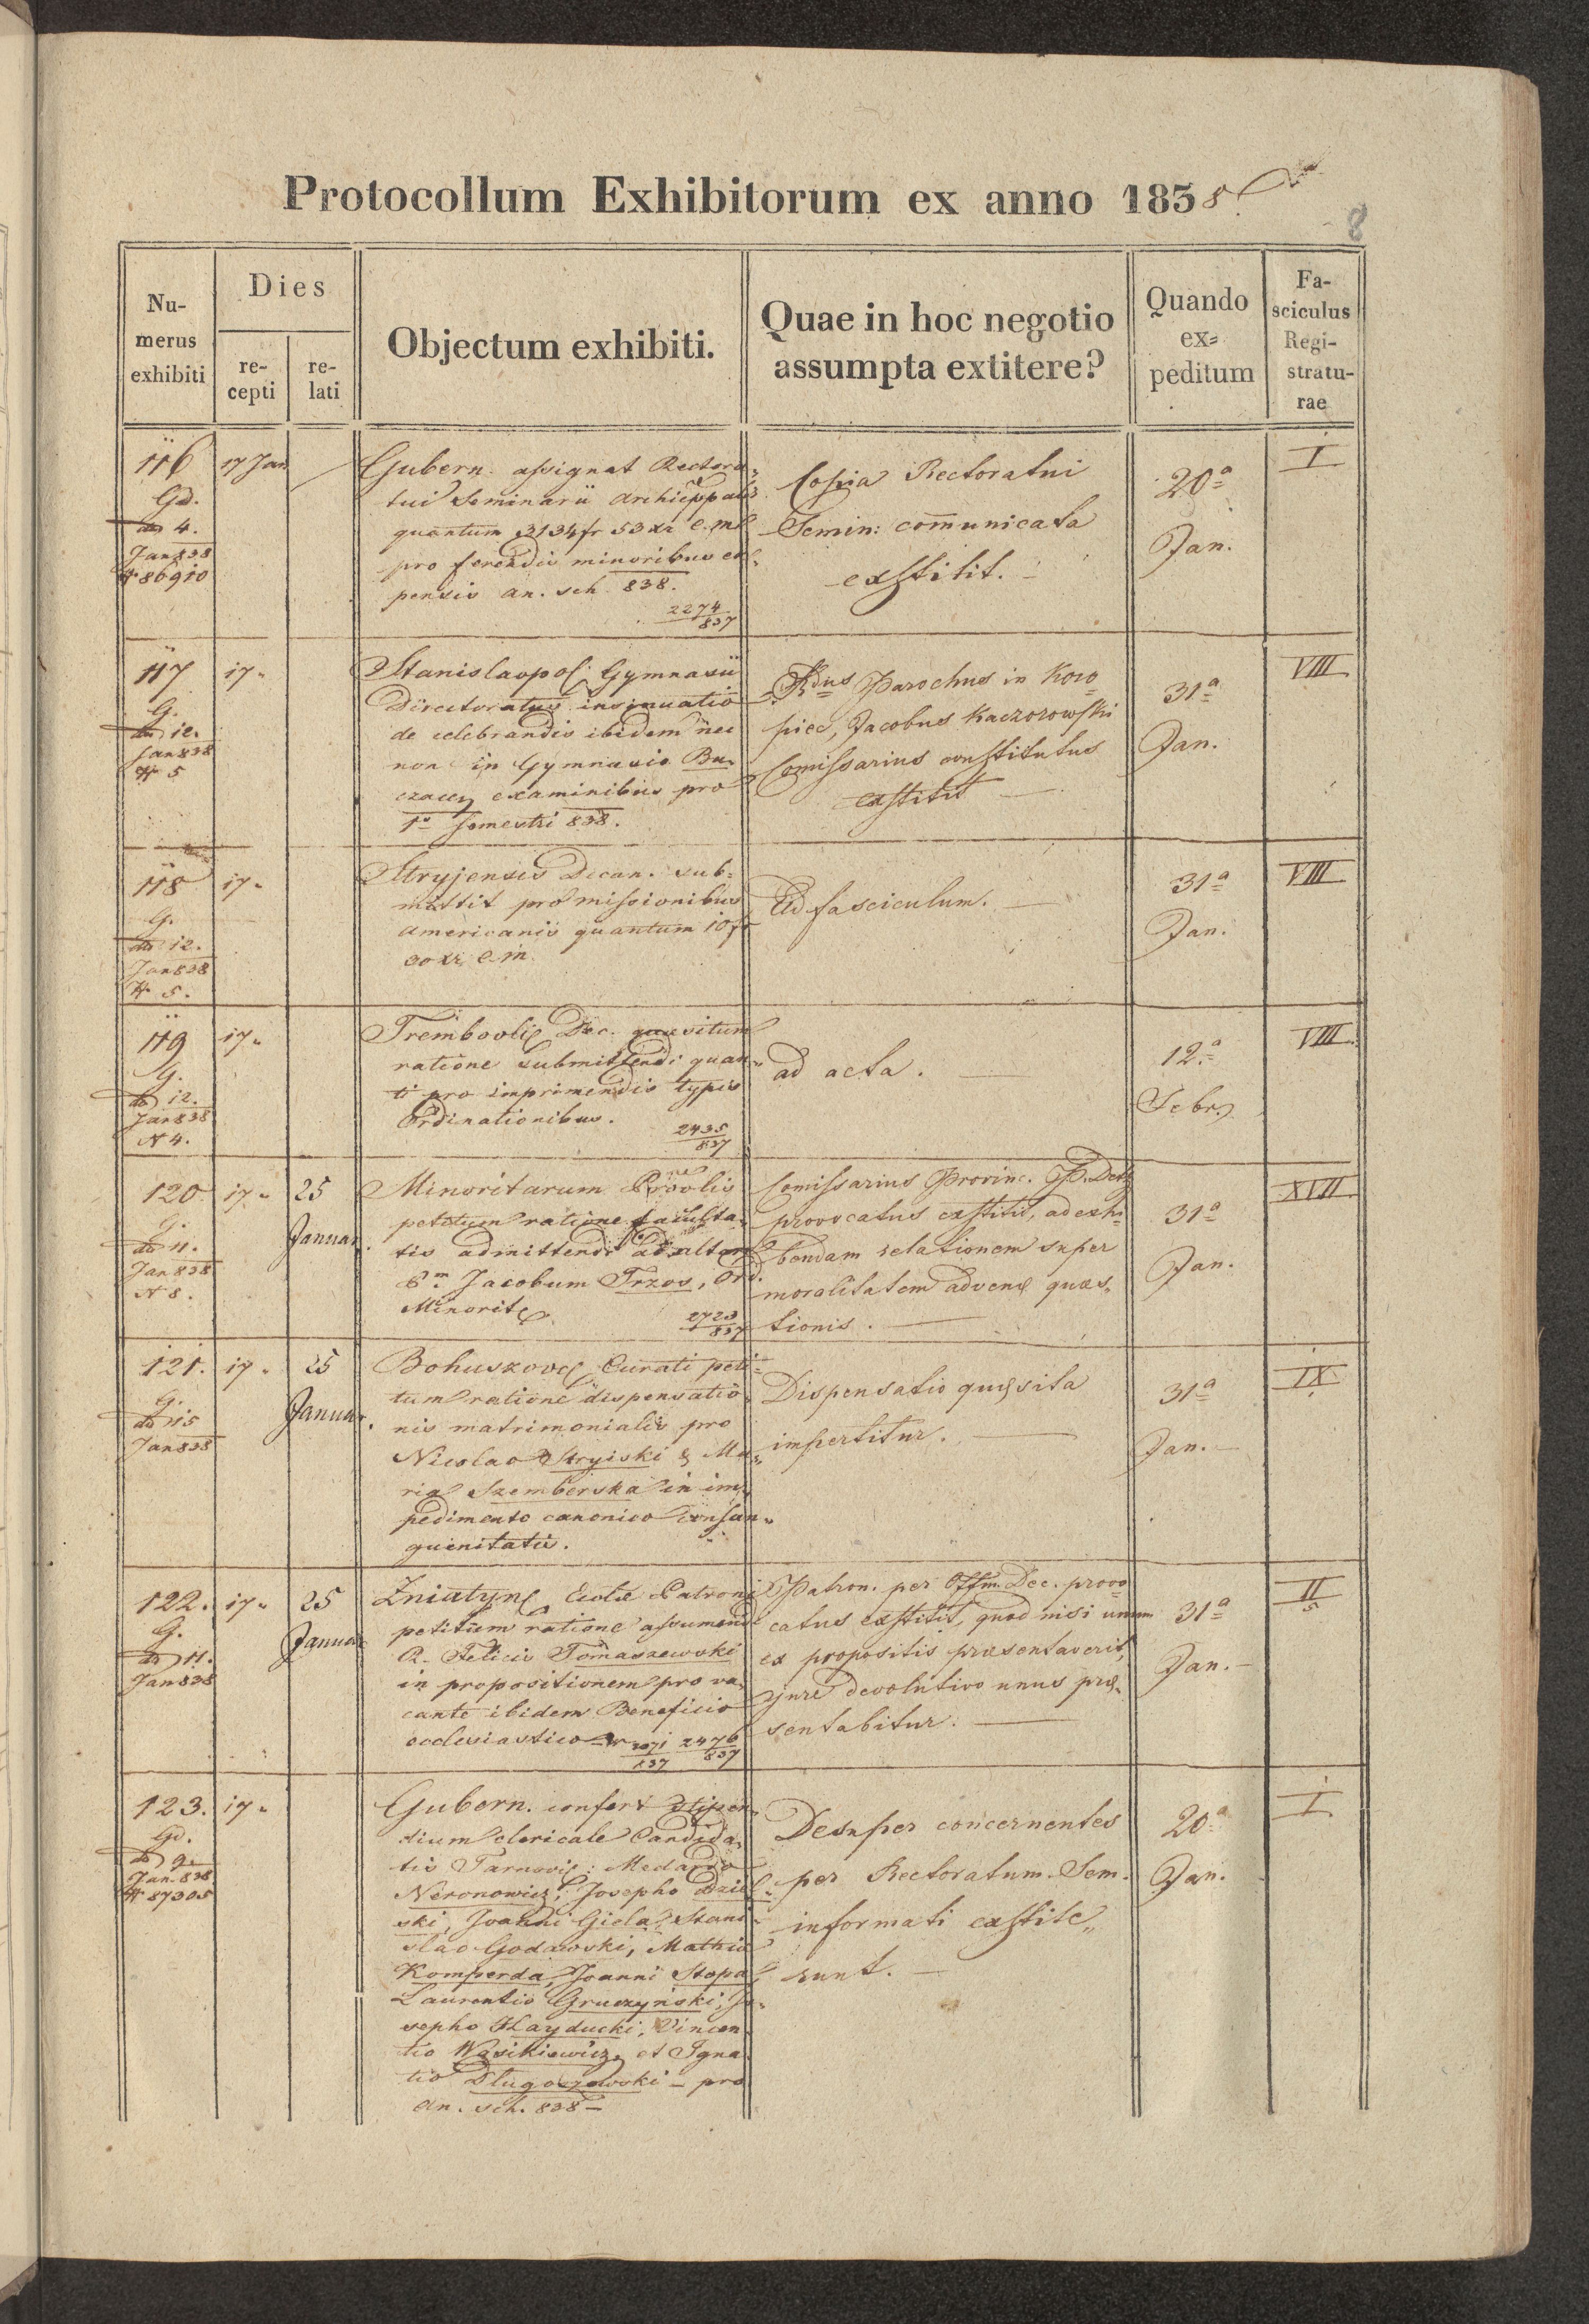 Protocollum Exhibitorum ex anno 1838.
8
Nu-
merus
exhibiti
Dies
re-
cepti
re-
lati
Objectum exhibiti.
Quae in hoc negotio
assumpta extitere?
Quando
ex=
peditum
Fa-
sciculus
Regi-
stratu-
rae
116
Gd.
dd 4.
Jan 838
N 86910
17 Jan
Gubern. assignat Rectora=
tui Seminarii Archieppalis
quantum 3134 fr 53 xr C.M.
pro ferendis minoribus ex=
pensis an. sch. 838.
2274
837
Copia Rectoratui
Semin: comunicata
exstitit.
20a
Jan.
I
117
G.
dd 12.
Jan 838
N 5
17 "
Stanislaopol. Gymnasii
Directoratus insinuatio
de celebrandis ibidem nec
non in Gymnasio Bu-
czacz examinibus pro
1o semestri 838.
Rdus Parochus in Koro=
piec, Jacobus Kaczorowski
Comissarius constitutus
exstitit
31a
Jan.
VIII
118
G.
dd 12.
Jan 838
N 5.
17 "
Stryjensis Decan. sub=
mittit pro missionibus
Americanis quantum 10 fr
30 xr C.M.
Ad fasciculum.
31a
Jan.
VIII
119
G.
dd 12.
Jan 838
N 4.
17 "
Trembovlę Dec. quaesitum
ratione submittendi quan=
ti pro imprimendis typis
Ordinationibus.
2435
837
ad acta.
12a
Febr.
VIII
120
G.
dd 11.
Jan 838
N 8.
17 "
25
Januar.
Minoritarum Provlis
petitum ratione faculta=
tis admittendi ad altare
Jacobum Trzos, Ord.
Minoritę
2723
837
Comissarius Provinc. P.
provocatus exstitit, ad exhi=
bendam relationem super
moralitatem advenę quęs=
tionis.
31a
Jan.
XVII
121.
G.
dd 15
Jan 838
17 "
25
Januar.
Bohuszovę Curati peti=
tum ratione dispensatio=
nis matrimonialis pro
Nicolao Stryiski & Ma=
ria Szemberska in im=
pedimento canonico consan=
guinitatis.
Dispensatio quęsita
impertitur.
31a
Jan.
IX
122.
G.
dd 11.
Jan 838
17 "
25
Januar
Żniatynę Ecclę Patroni
petitum ratione assumendi
R. Felicis Tomaszewski
in propositionem pro va=
cante ibidem Beneficio
ecclesiastico
2476
837
Patron. per Offm. Dec. provo=
catus exstitit, quod nisi unum
ex propositis praesentaverit,
jure devolutivo unus prę=
sentabitur.
31a
Jan.
II
5
123.
Gd.
dd 9.
Jan. 838
N 87305
17 "
Gubern. confert Stipen=
dium clericale Candida=
tis Tarnovię: Medardo
Neronowicz, Josepho Dziel=
ski, Joanni Giela, Stani=
slao Godawski, Mathia
Komperda, Joanni Stopa,
Laurentio Gruczyński, Jo=
sepho Hayducki, Vincen=
tio Wasikiewicz, et Igna=
tio Długoszowski – pro
an. sch. 838 –
Desuper concernentes
per Rectoratum Sem.
informati exstite=
runt.
20a
Jan.
I